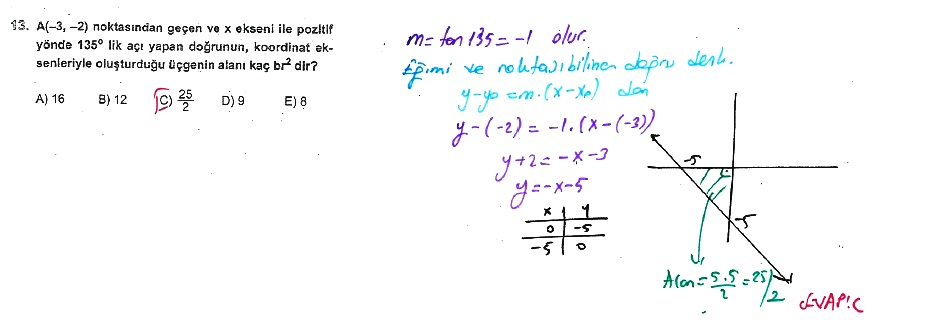 13. A(-3, -2) noktasından geçen ve x ekseni ile pozitif
yönde 135° lik açı yapan doğrunun, koordinat ek-
senleriyle oluşturduğu üçgenin alanı kaç br² dir?
A) 16 B) 12 C) 25/2 D) 9 E) 8
m = tan 135 = -1 olur.
Eğimi ve noktası bilinen doğru denk.
y-y₀ = m.(x-x₀) dan
y-(-2) = -1.(x-(-3))
y+2 = -x-3
y = -x-5
x | y
0 | -5
-5 | 0
-5
-5
Alan = 5.5/2 = 25/2
CEVAP:C